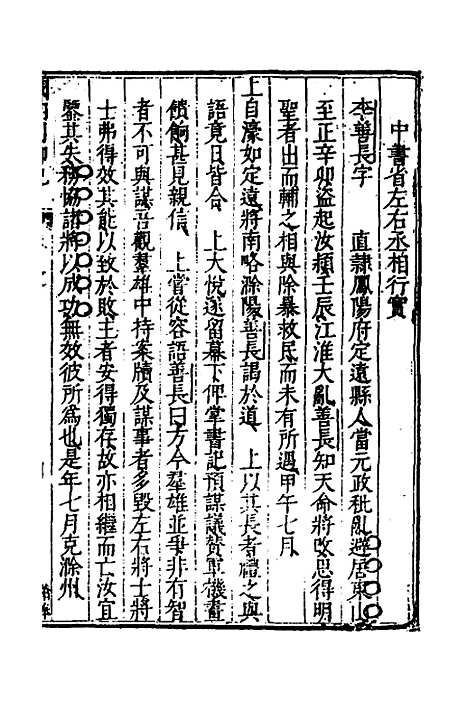 中書省左右丞相行實
李善長字　　直隸鳳陽府定遠縣人當元政秕亂避居東山
至正辛卯盗起汝潁壬辰江淮大亂善長知天命將改思得明
聖者出而輔之相與除暴救民而未有所遇甲午七月
上自濠如定遠將南略滁陽善長謁於道　上以其長者禮之與
語竟日皆合　上大悅遂留幕下俾掌書記預謀議賛軍機畫
饋餉甚見親信　上嘗從容語善長曰方今羣雄並爭非有智
者不可與謀吾觀羣雄中持案牘及謀事者多毀左右將士將
士弗得效其能以致於敗主者安得獨存故亦相繼而亡汝宜
鑒其失務協諸將以成功無效彼所爲也是年七月克滁州